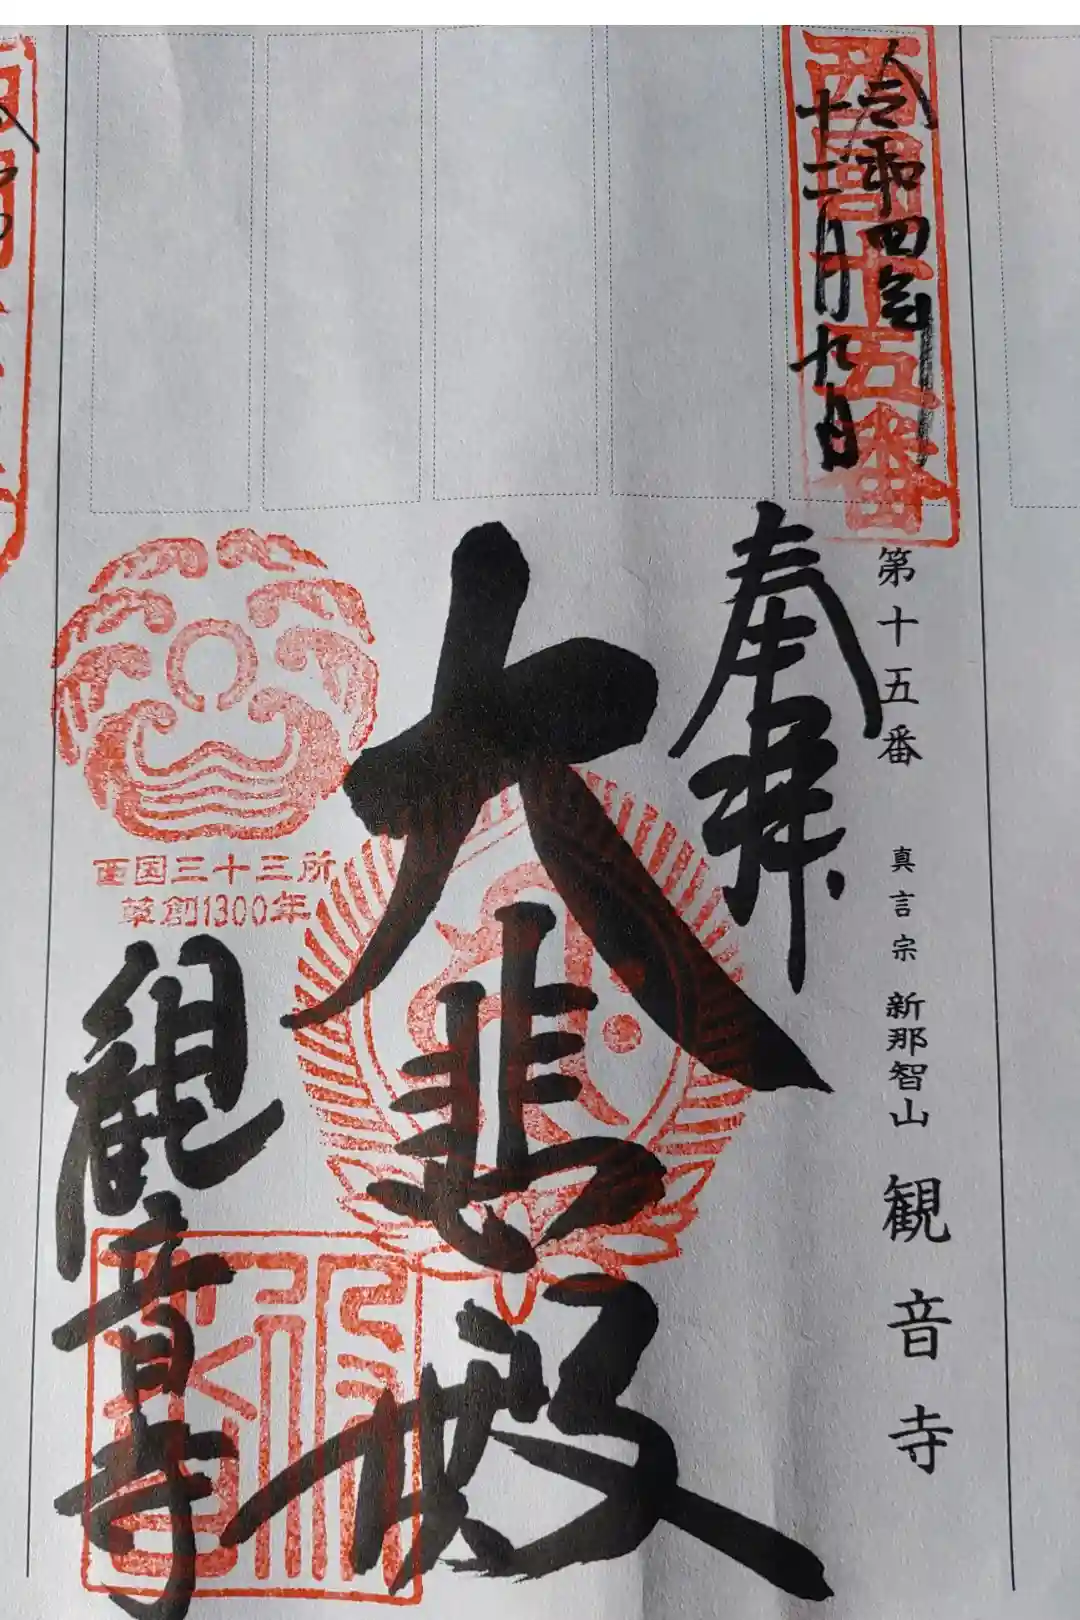 西国十五番
令和四年
十二月九日
第十五番 真言宗 新那智山 観音寺
奉拝
大悲殿
西国三十三所
草創1300年
観音寺